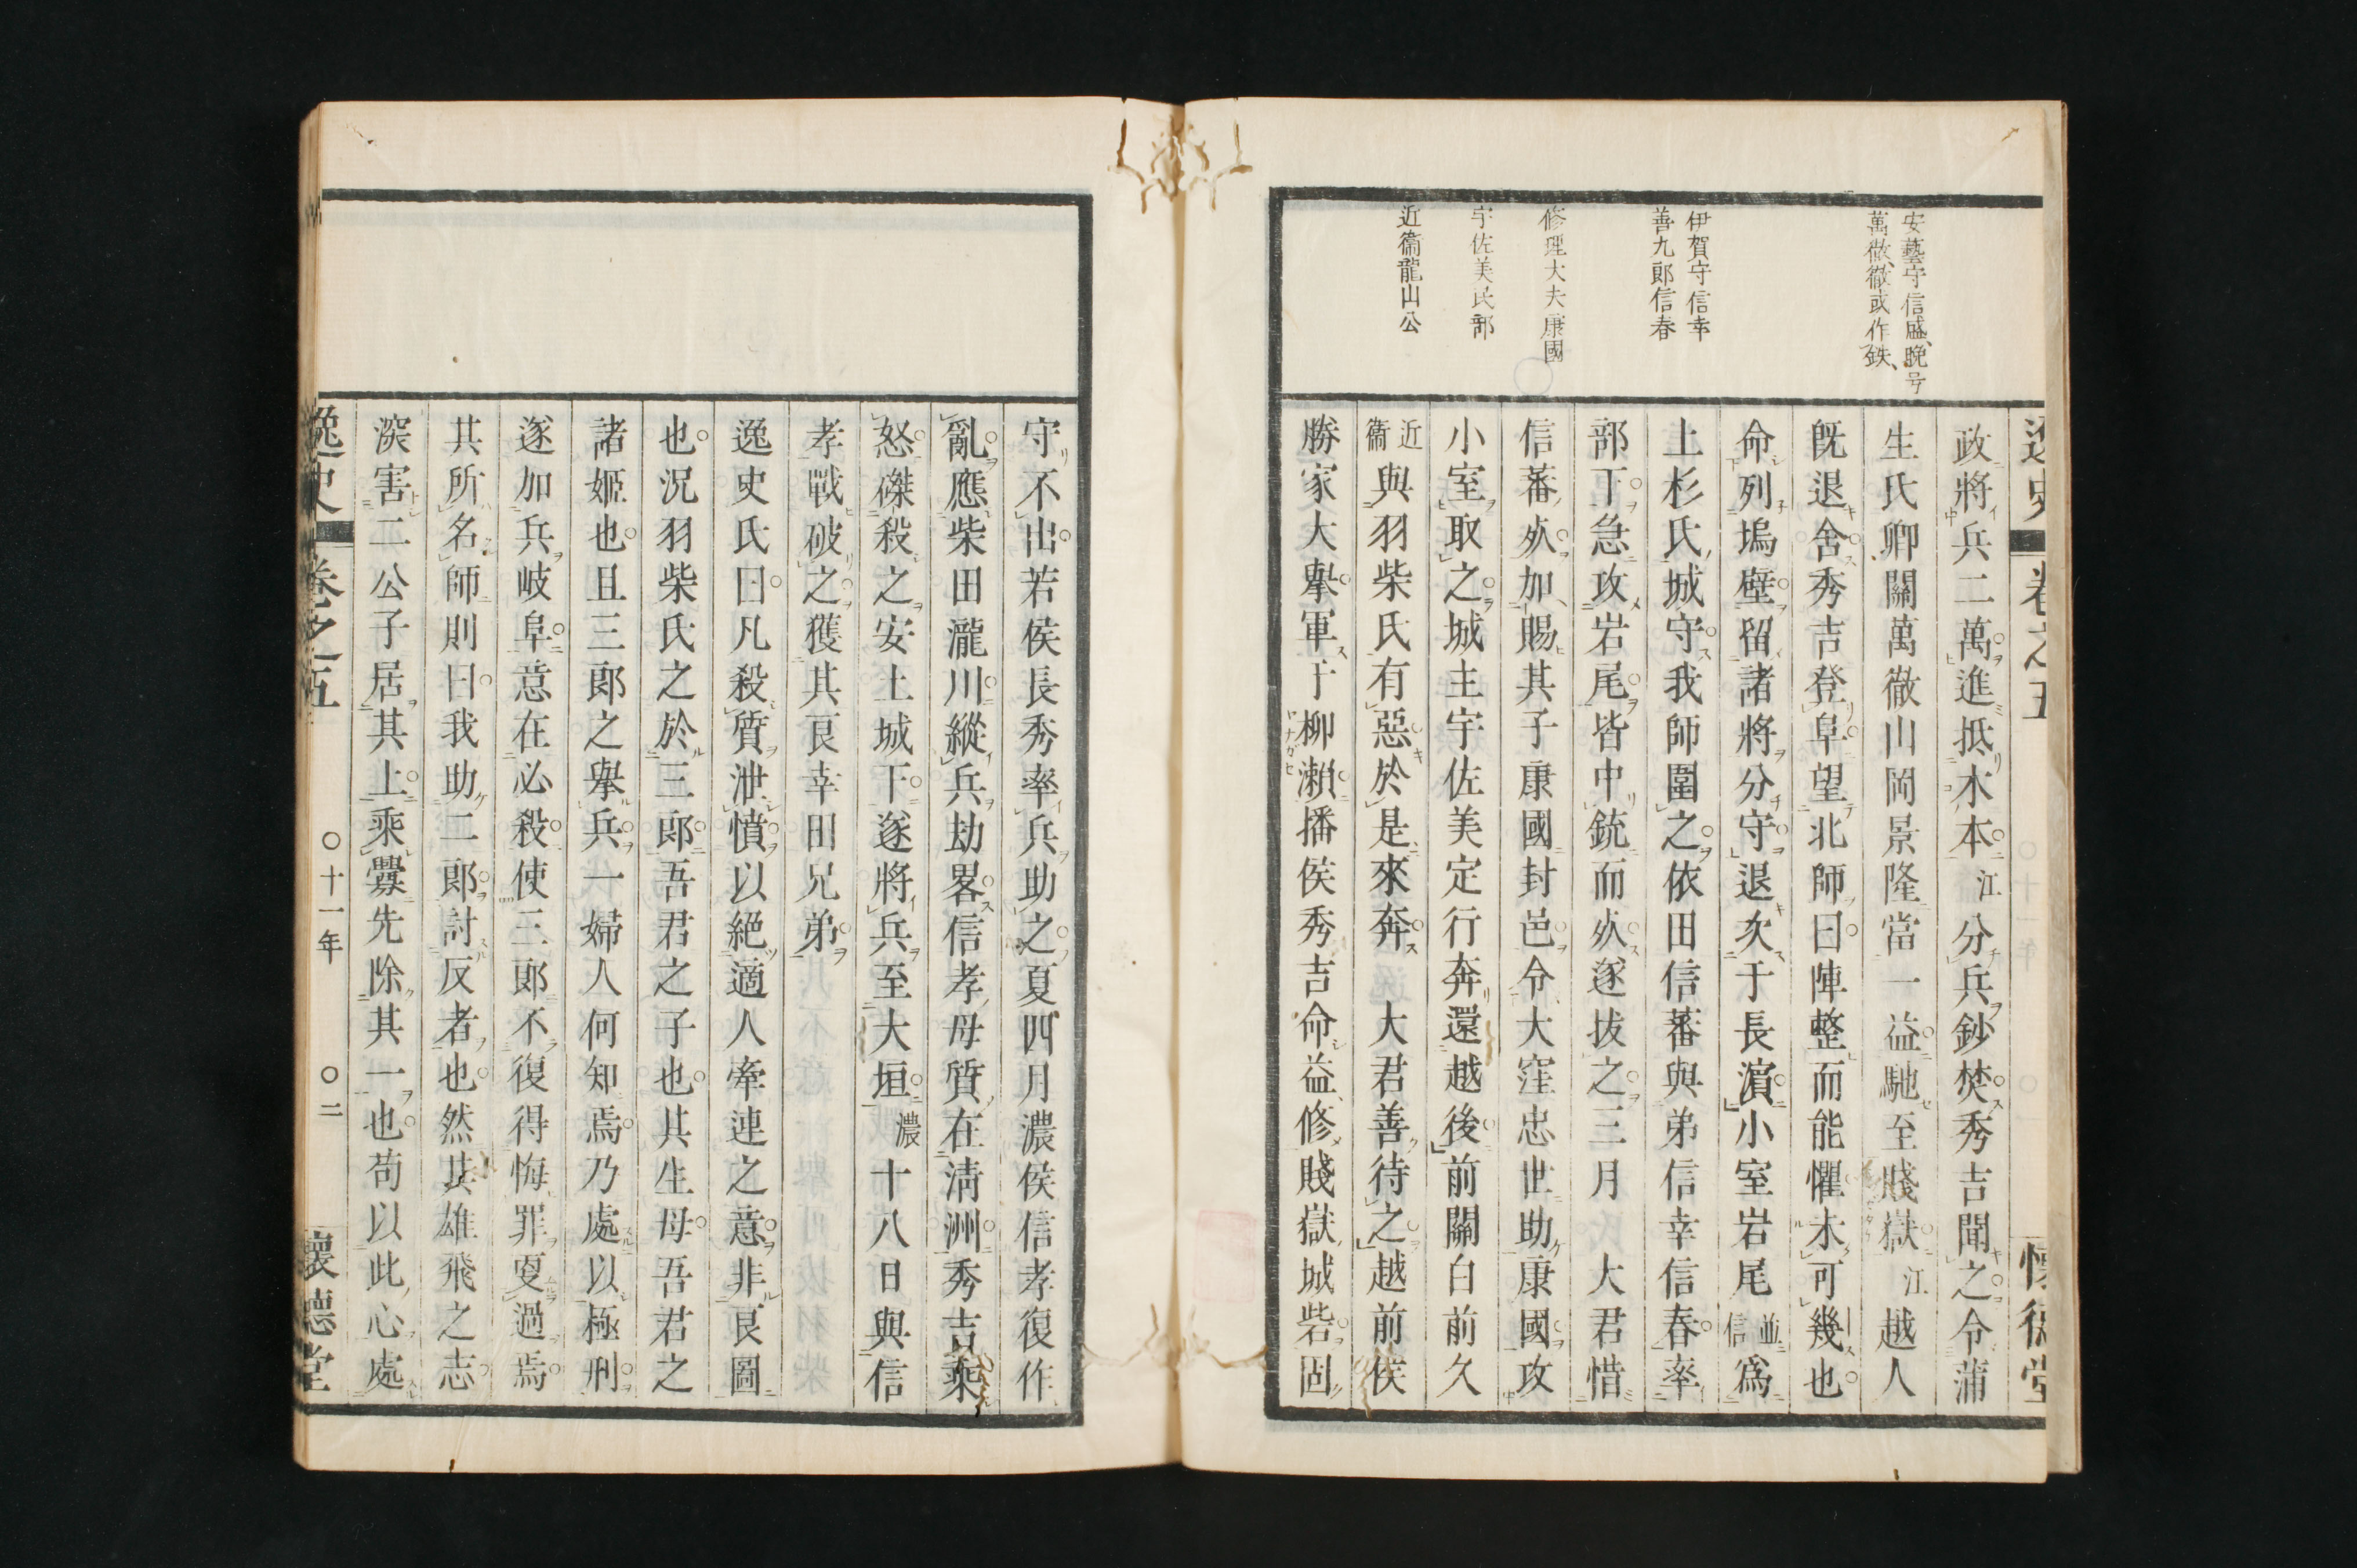 安藝守信盛、晩号
萬徹、徹或作鉄、
伊賀守信幸
善九郎信春
修理大夫康國
宇佐美民部
近衞龍山公
政將兵二萬進抵木本江分兵鈔焚秀吉聞之令蒲
生氏卿關萬徹山岡景隆當一益馳至賤嶽江越人
既退舍秀吉登阜望北師曰陣整而能懼未可幾也
命列塢壁留諸將分守退次于長濵小室岩尾並信爲
上杉氏城守我師圍之依田信蕃與弟信幸信春率
部下急攻岩尾皆中銃而死遂拔之三月 大君惜
信蕃死加賜其子康國封邑令大窪忠世助康國攻
小室取之城主宇佐美定行奔還越後前關白前久
近衞與羽柴氏有惡於是來奔 大君善待之越前侯
勝家大擧軍于柳瀬播侯秀吉命益修賤嶽城砦固
守不出若侯長秀率兵助之夏四月濃侯信孝復作
亂應柴田瀧川縱兵劫畧信孝母質在淸洲秀吉乘
怒磔殺之安土城下遂將兵至大垣濃十八日與信
孝戰破之獲其良幸田兄弟
逸史氏曰凡殺質泄憤以絕適人牽連之意非良圖
也況羽柴氏之於三郎吾君之子也其生母吾君之
諸姬也且三郎之擧兵一婦人何知焉乃處以極刑
遂加兵岐阜意在必殺使三郎不復得悔罪叓過焉
其所名師則曰我助二郎討反者也然其雄飛之志
深害二公子居其上乘釁先除其一也苟以此心處
逸史 卷之五 〇十一年 〇二 懷德堂